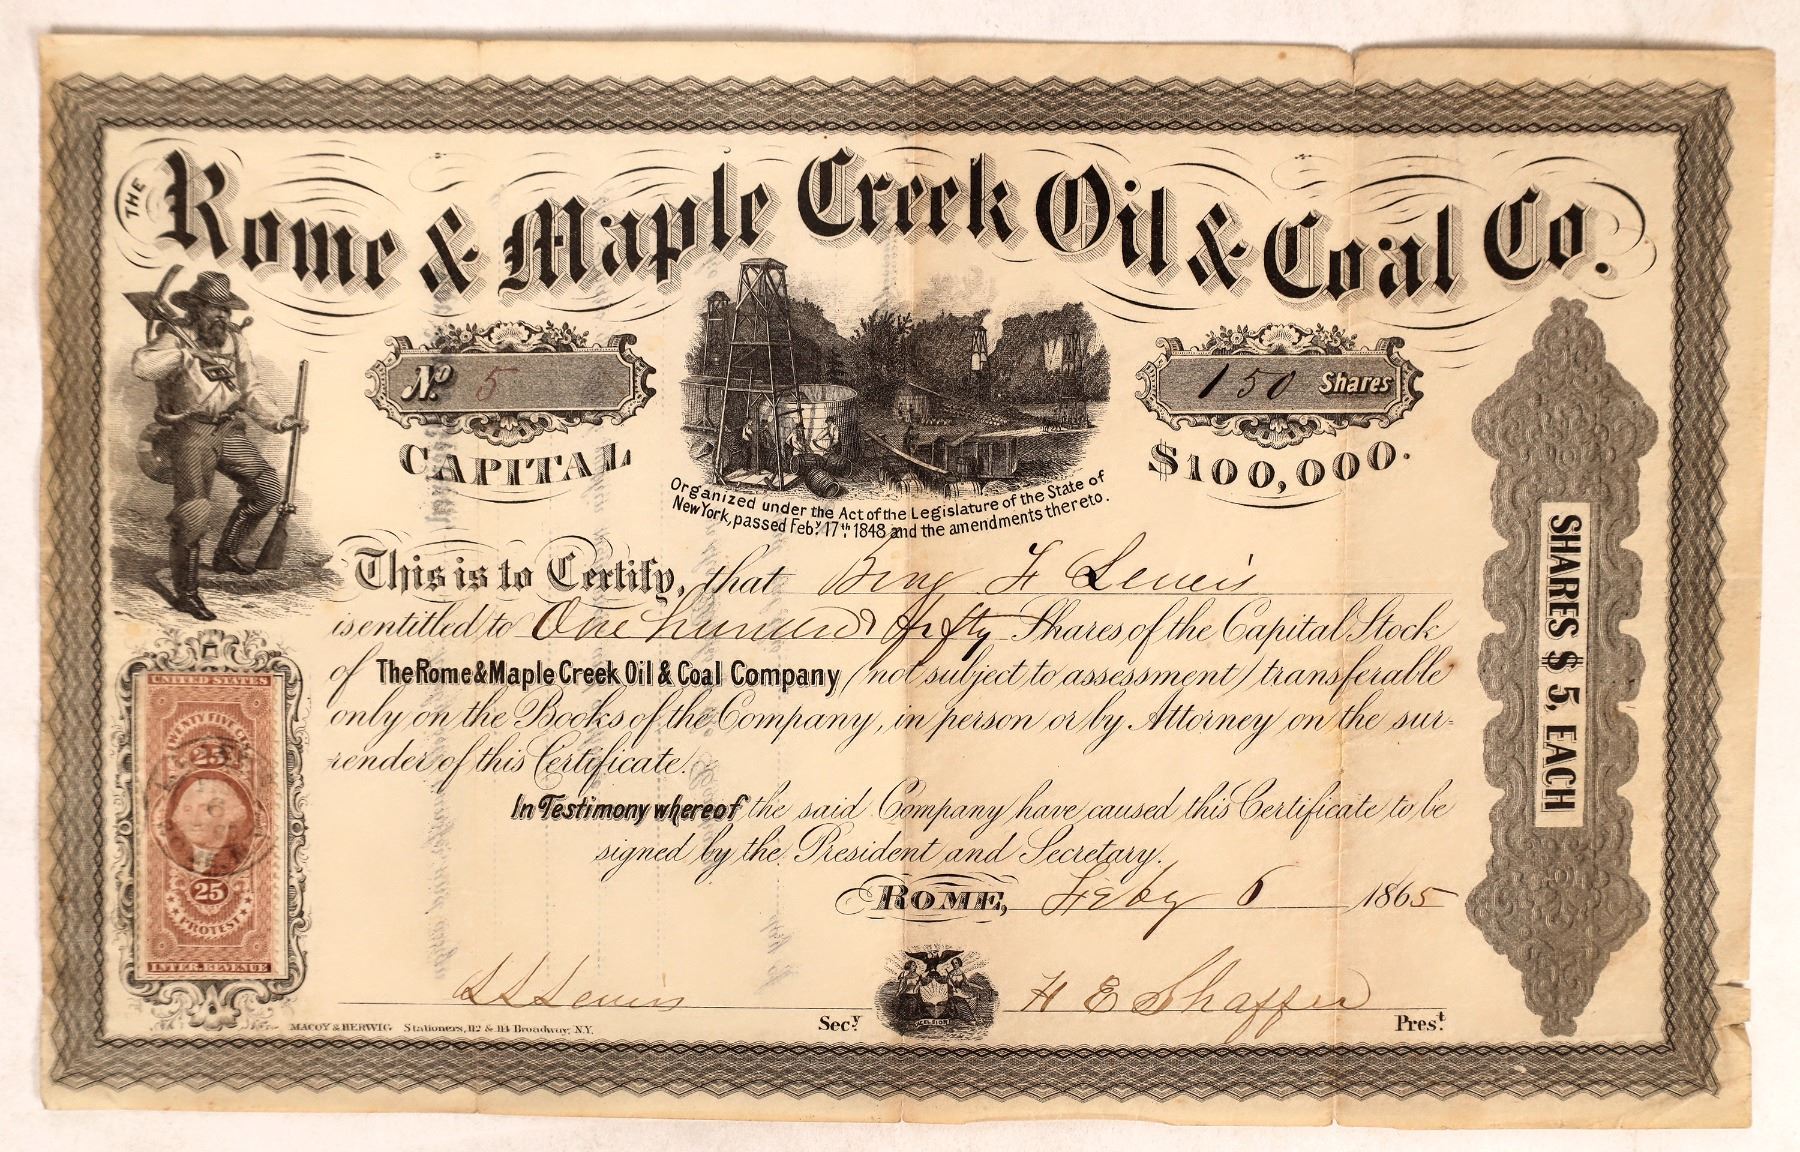 THE
Rome & Maple Creek Oil & Coal Co.
No. 5
150 Shares
CAPITAL
$100,000.
Organized under the Act of the Legislature of the State of
New York, passed Feby. 17th. 1848 and the amendments thereto.
This is to Certify, that Benj F Lewis
is entitled to One hundred & fifty Shares of the Capital Stock
of The Rome & Maple Creek Oil & Coal Company (not subject to assessment) transferable
only on the Books of the Company, in person or by Attorney on the sur-
render of this Certificate.
In Testimony whereof the said Company have caused this Certificate to be
signed by the President and Secretary.
ROME, Feby 6 1865
Lewis Secy.
H E Shaffer Prest.
EXCELSIOR
MACOY & HERWIG Stationers, 112 & 114 Broadway, N.Y.
SHARES $5, EACH
UNITED STATES
TWENTY FIVE CTS
25
25
PROTEST
INTER. REVENUE